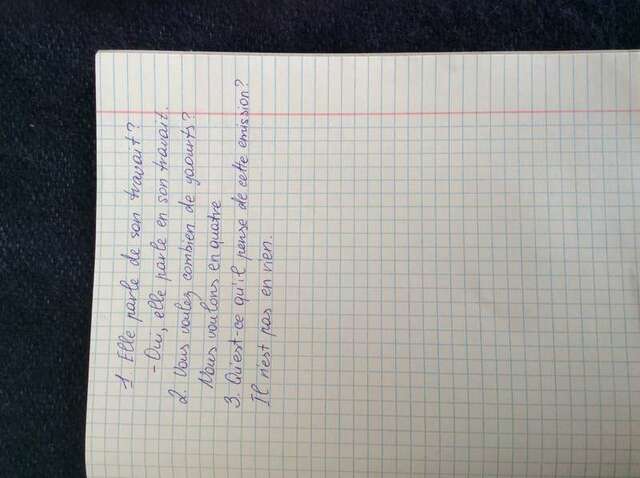 1. Elle parle de son travail?
- Oui, elle parle en son travail.
2. Vous voulez combien de yaourts?
Nous voulons en quatre
3. Qu'est-ce qu'il pense de cette emission?
Il n'est pas en rien.